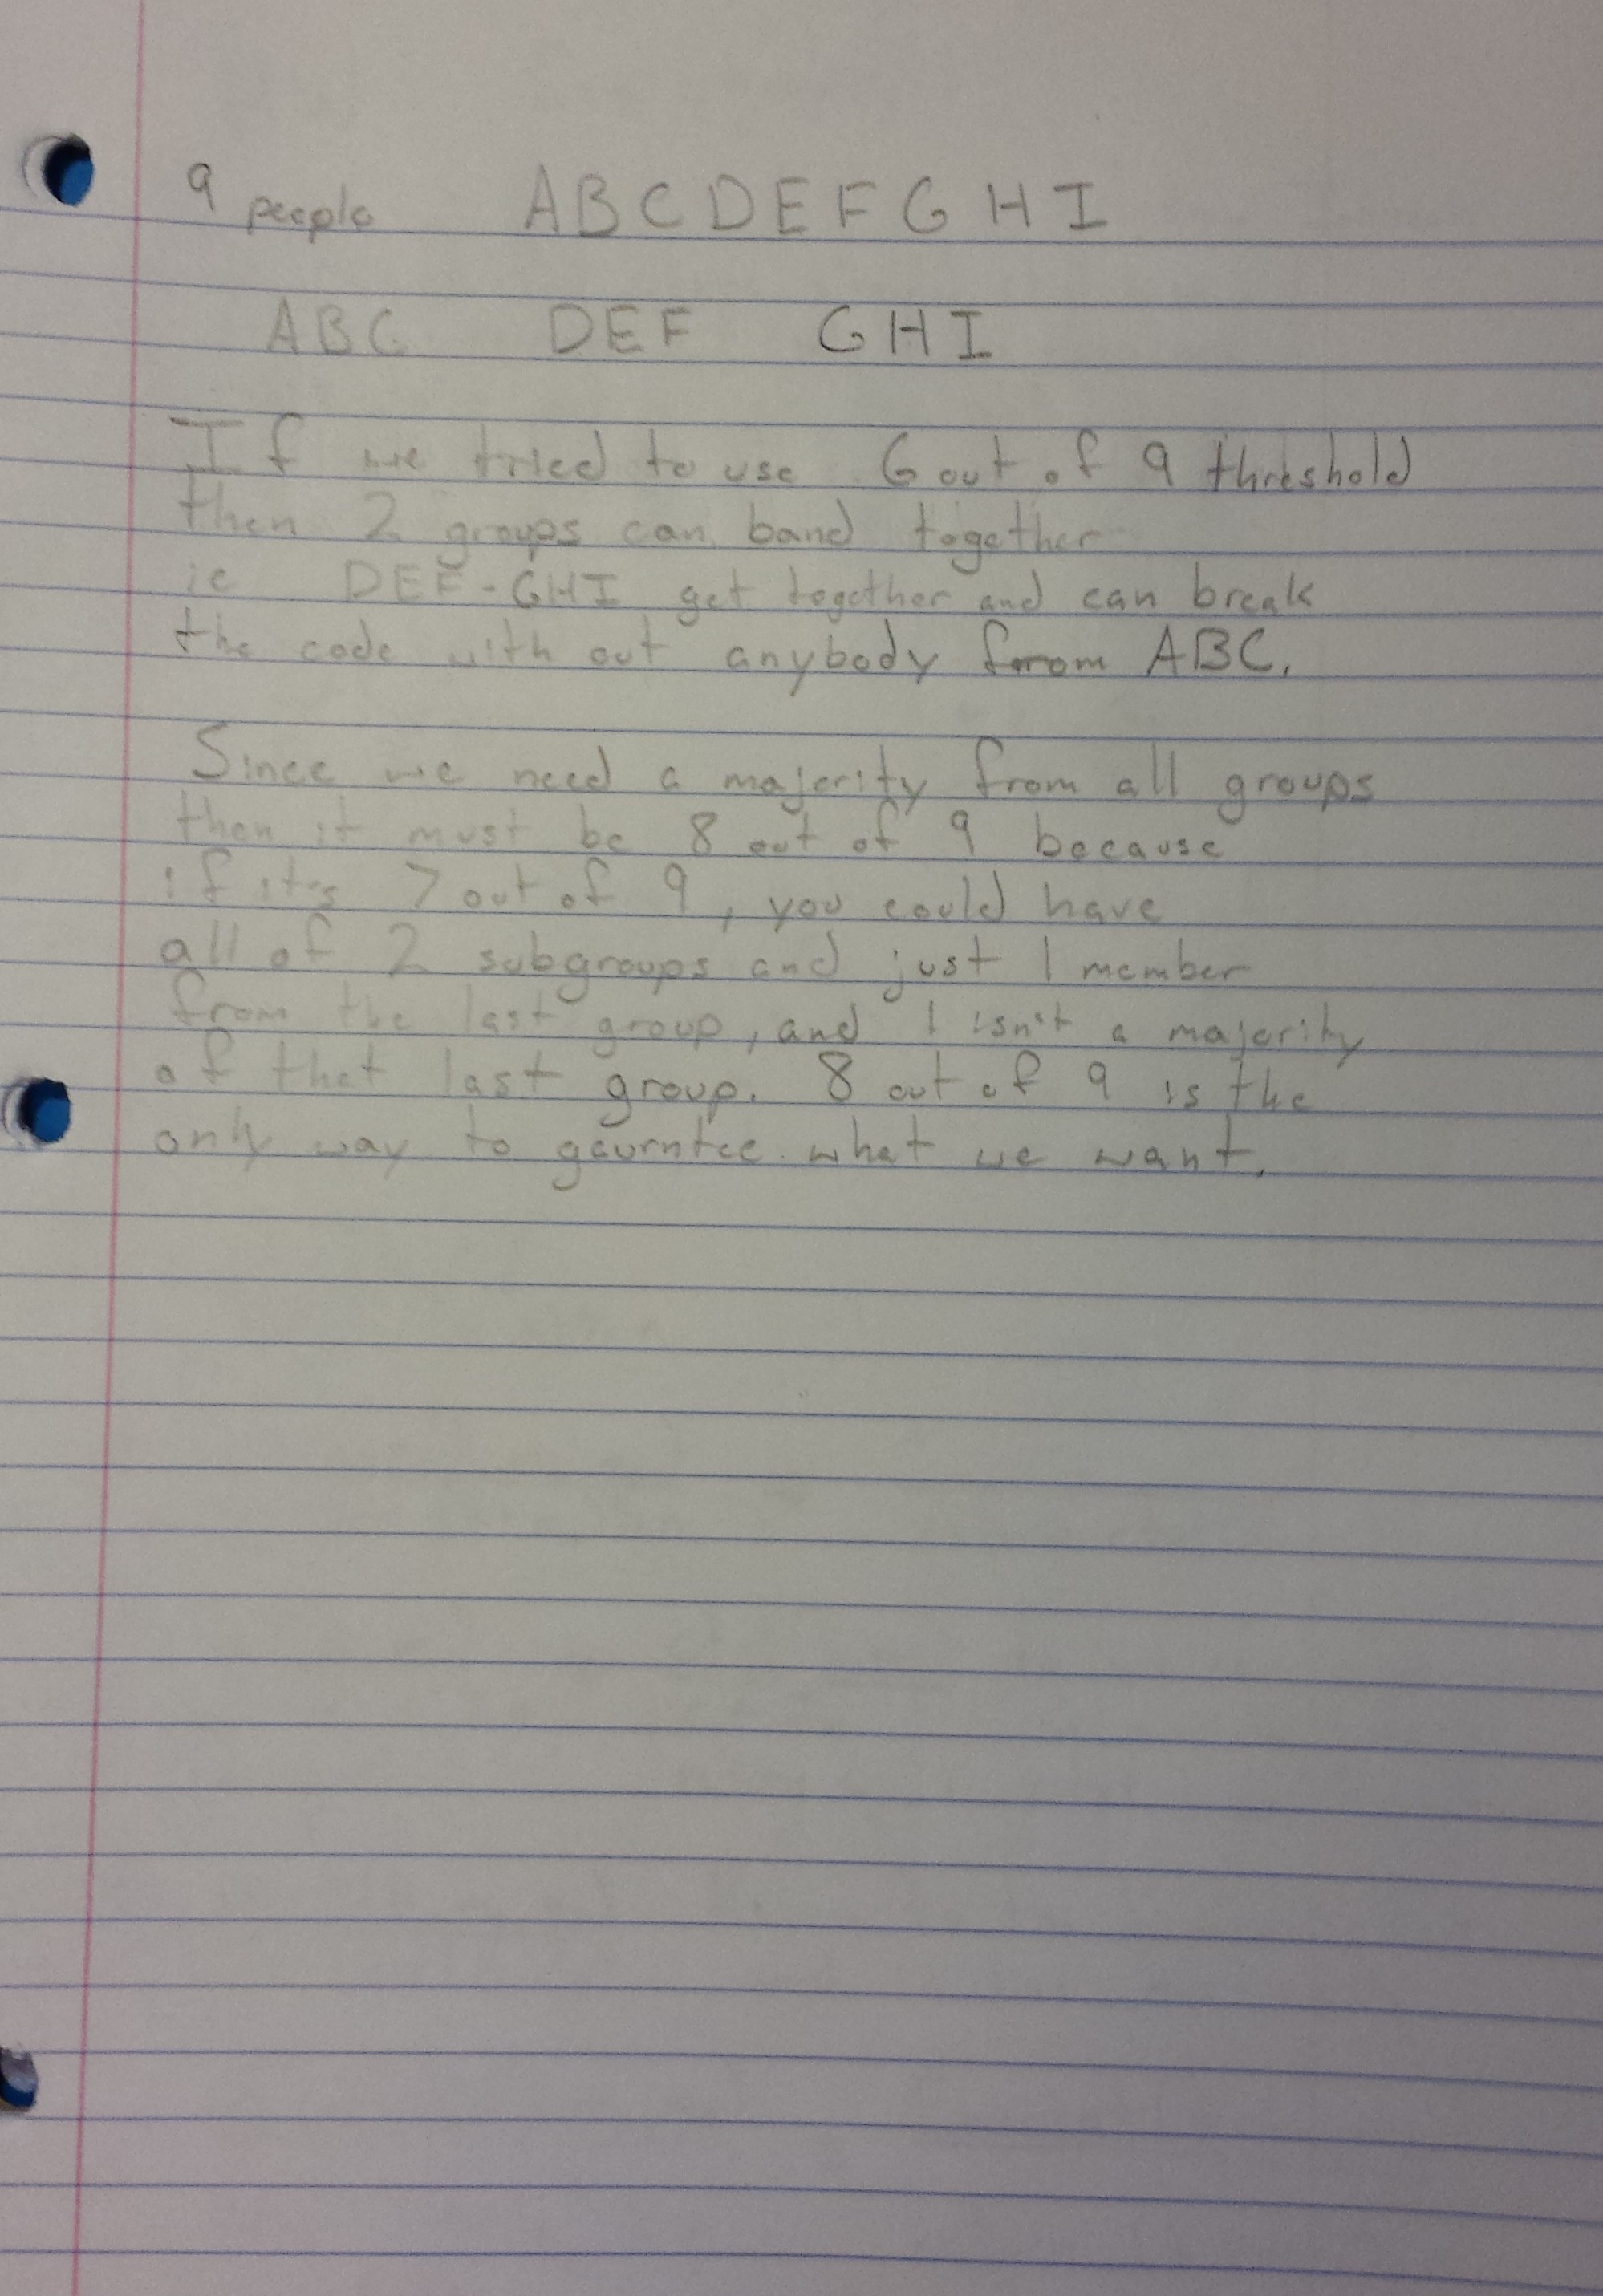 9 people A B C D E F G H I
A B C D E F G H I
If we tried to use 6 out of 9 threshold
then 2 groups can band together
ie DEF-GHI get together and can break
the code with out anybody from ABC.
Since we need a majority from all groups
then it must be 8 out of 9 because
if it's 7 out of 9, you could have
all of 2 subgroups and just 1 member
from the last group, and 1 isn't a majority
of that last group. 8 out of 9 is the
only way to gaurntee what we want.